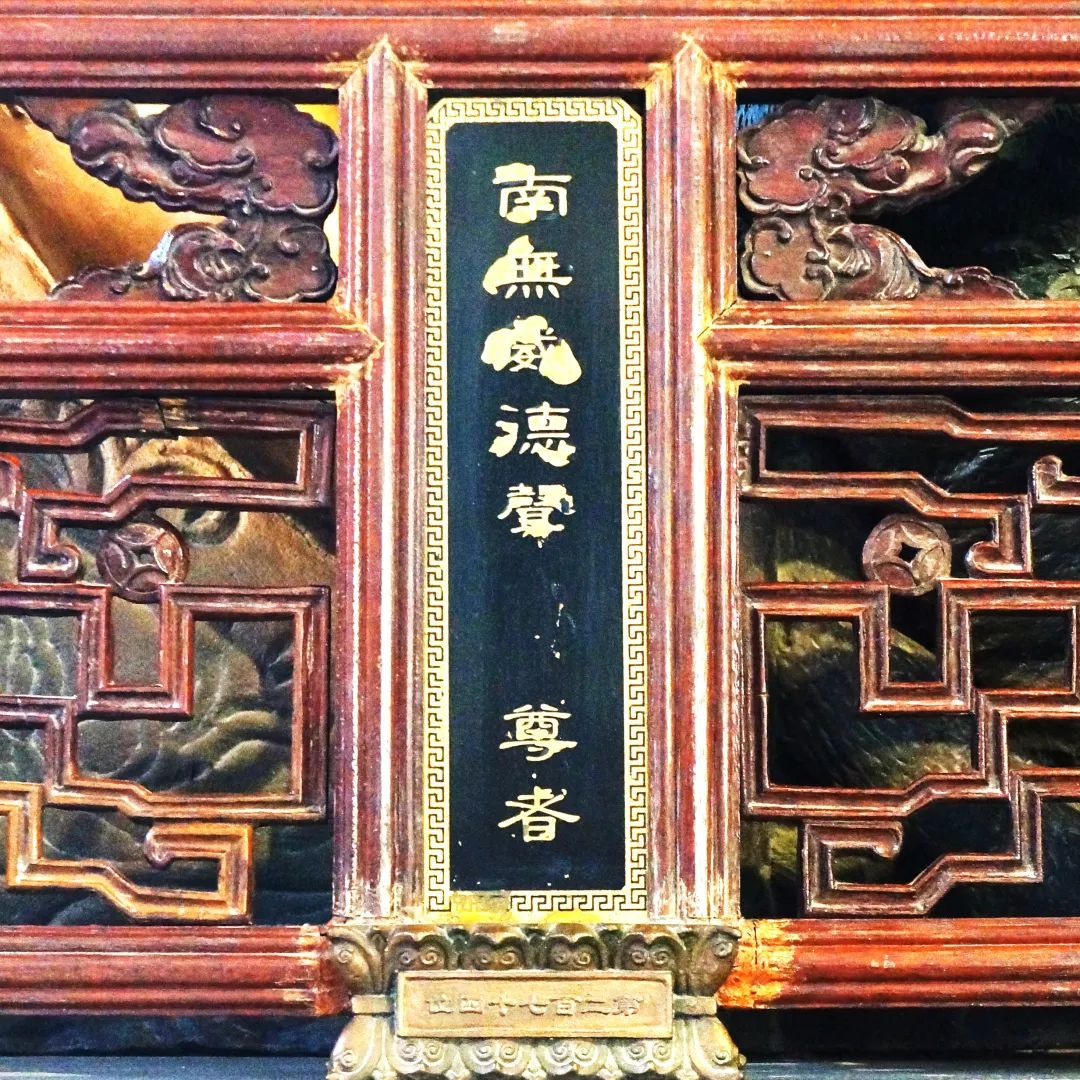 南無威德聲 尊者
第二百七十四位